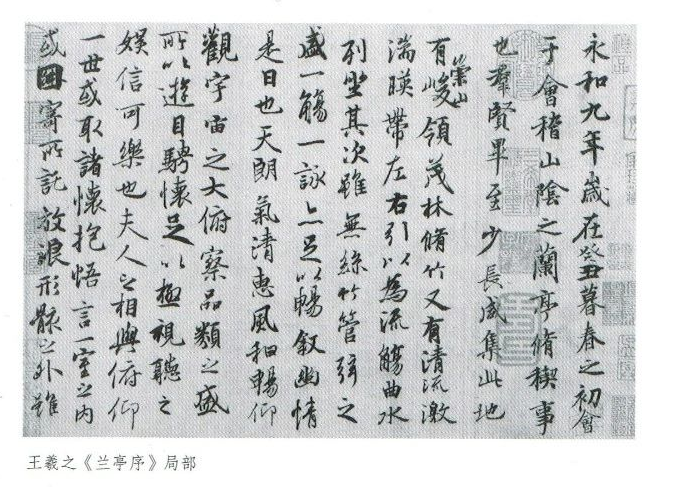 永和九年歲在癸丑暮春之初會
于會稽山陰之蘭亭脩稧事
也羣賢畢至少長咸集此地
有崇山峻領茂林脩竹又有清流激
湍暎帶左右引以為流觴曲水
列坐其次雖無絲竹管弦之
盛一觴一詠亦足以暢叙幽情
是日也天朗氣清惠風和暢仰
觀宇宙之大俯察品類之盛
所以遊目騁懷足以極視聽之
娛信可樂也夫人之相與俯仰
一世或取諸懷抱悟言一室之内
或因寄所託放浪形骸之外雖
王羲之《兰亭序》局部